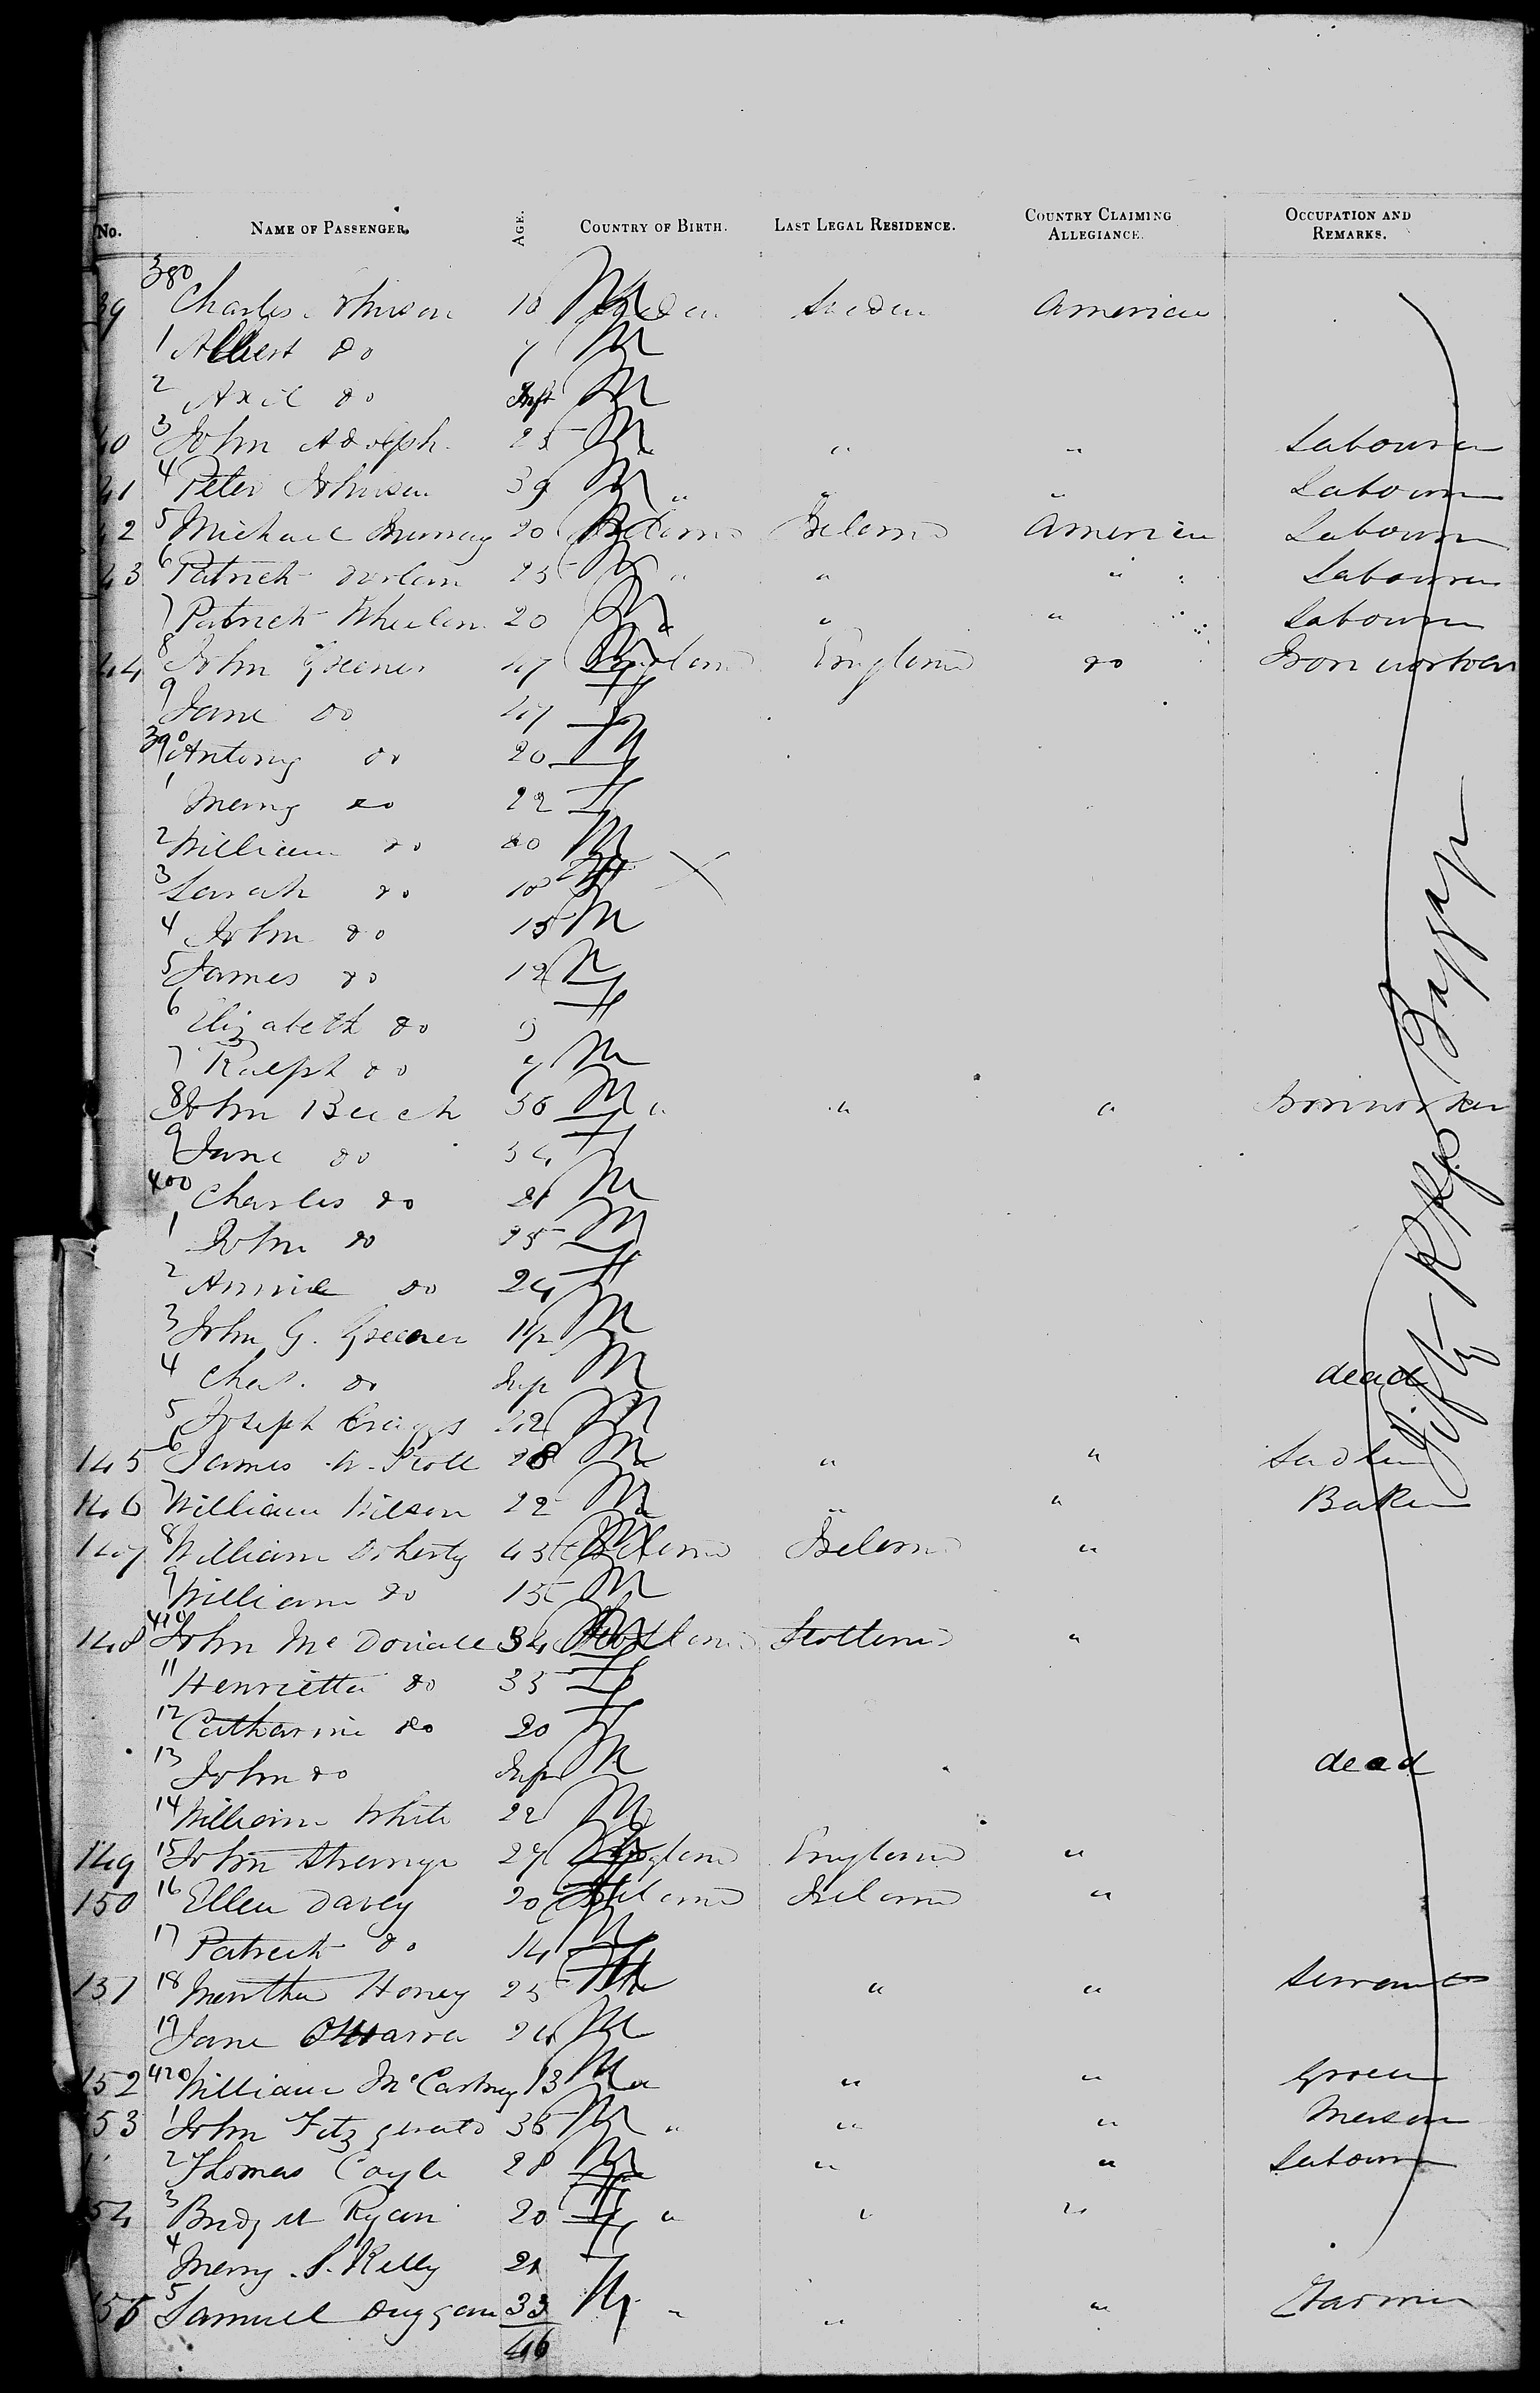 No. NAME OF PASSENGER. AGE. COUNTRY OF BIRTH. LAST LEGAL RESIDENCE. COUNTRY CLAIMING ALLEGIANCE. OCCUPATION AND REMARKS.
380
39 Charles Johnson 10 M Sweden Sweden American
1 Albert do 7 M
2 Axel do Inft M
40 3 John Adolph 25 M " " " Labourer
41 4 Peter Johnson 39 M " " " Labourer
42 5 Michael Murray 20 M Ireland Ireland American Labourer
43 6 Patrick 25 M " " " Labourer
7 Patrick Whelan 20 M " " " Labourer
44 8 John Greener 47 M England England do Iron worker
9 Jane do 47 F
390 Antony do 20 M
1 Mary do 22 F
2 William do 20 M
3 Sarah do 18 F X
4 John do 15 M
5 James do 12 M
6 Elizabeth do 9 F
7 Ralph do 7 M
8 John Beech 56 M " " " Ironworker
9 Jane do 54 F
400 Charles do 21 M
1 John do 25 M
2 Annie do 24 F
3 John G. Greener 1 1/2 M
4 Chas. do Inf M dead
5 Joseph Craggs 42 M
145 6 James W. 28 M " " "
146 7 William Wilson 22 M " " " Baker
147 8 William Doherty 45 M Ireland Ireland "
9 William do 15 M
148 410 John McDonald 34 M Scotland Scotland "
11 Henrietta do 35 F
12 Catharine do 20 F
13 John do Inf M dead
14 William White 22 M
149 15 John Strange 27 M England England "
150 16 Ellen Davey 20 F Ireland Ireland "
17 Patrick do 14 M
151 18 Martha Honey 25 F " " " Servants
19 Jane O'Harra 24
152 420 William McCartney 13 M " " " Grocer
153 1 John Fitzgerald 35 M " " " Mason
2 Thomas Coyle 28 M " " Labourer
54 3 Bridget Ryan 20 F " " "
4 Mary S. Kelly 21 F
155 5 Samuel Duggan 33 M " " " Farmer
46
Fifty Pkgs Baggage